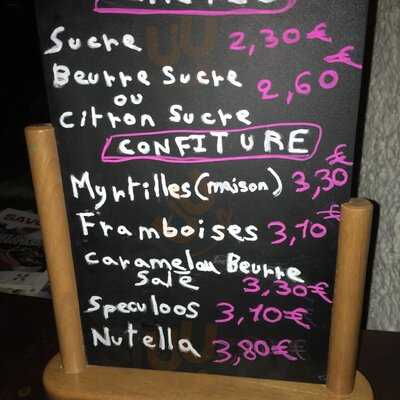 Sucre 2,30€
Beurre Sucre €
ou 2,60
Citron Sucre
CONFITURE
Myrtilles (maison) 3,30€
Framboises 3,10€
Caramel au Beurre
Salé 3,30€
Speculoos 3,10€
Nutella 3,80€